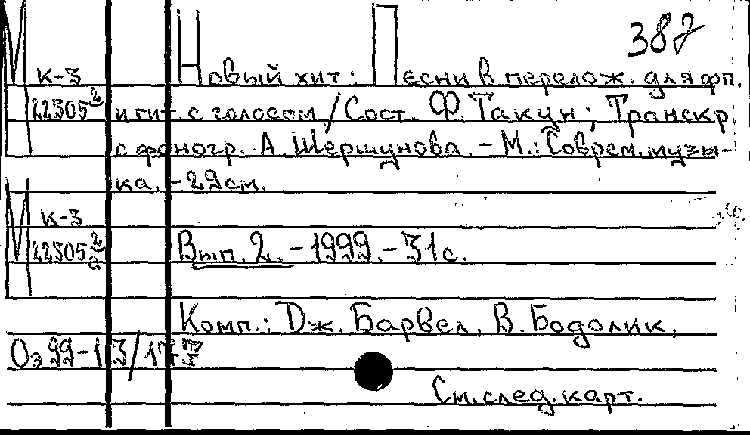 387
М К-3 Новый хит: Песни в перелож. для фп.
П 22305 2/ и гит с голосом / Сост. Ф. Такун; Транскр.
с фоногр. А. Шершунова. - М.: Соврем. музы-
ка. - 29 см.
М К-3
22305 2/2 Вып. 2. - 1999. - 31 с.
Комп.: Дж. Барвел, В. Бодолик.
Оз 99-13/177
См. след. карт.